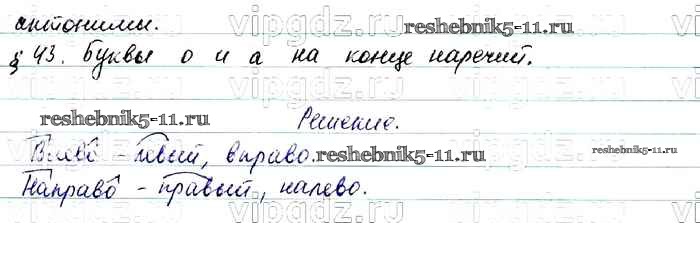 антонимы.
§ 43. Буквы о и а на конце наречий.
Решение.
Влево - левый, вправо.
Направо - правый, налево.
vipgdz.ru
reshebnik5-11.ru
reshebnik5-11.ru
reshebnik5-11.ru
reshebnik5-11.ru